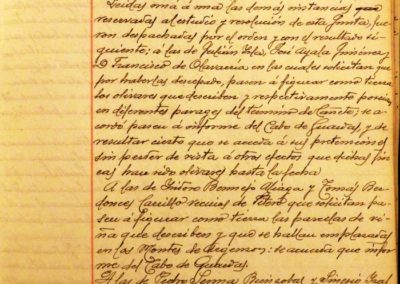 Leidas una á una las demás instancias que
reservadas al estudio y resolución de esta Junta, fue
ron despachadas por el orden y con el resultado si-
guiente; á las de Julián José Ayala Jiménez
y Francisco de Olavarria en las cuales solicitan que
por haberlas descepado, pasen á figurar como tierra
los olivares que describen y respectivamente poseen
en diferentes parages del término de Cañete; se a-
cordó pasen á informe del Cabo de Guardas, y de
resultar cierto que se acceda á sus pretenciones
sin perder de vista á otros efectos que dichas fin
cas han sido olivares hasta la fecha
A las de Isidro Bermejo Aliaga y Tomás Ber-
donces Carrillo vecinos de que solicitan pa-
sen á figurar como tierra las parcelas de vi-
ña que describen y que se hallan emplazadas
en los Montes de se acuerda que infor-
me del Cabo de Guardas.
A las de Pedro y